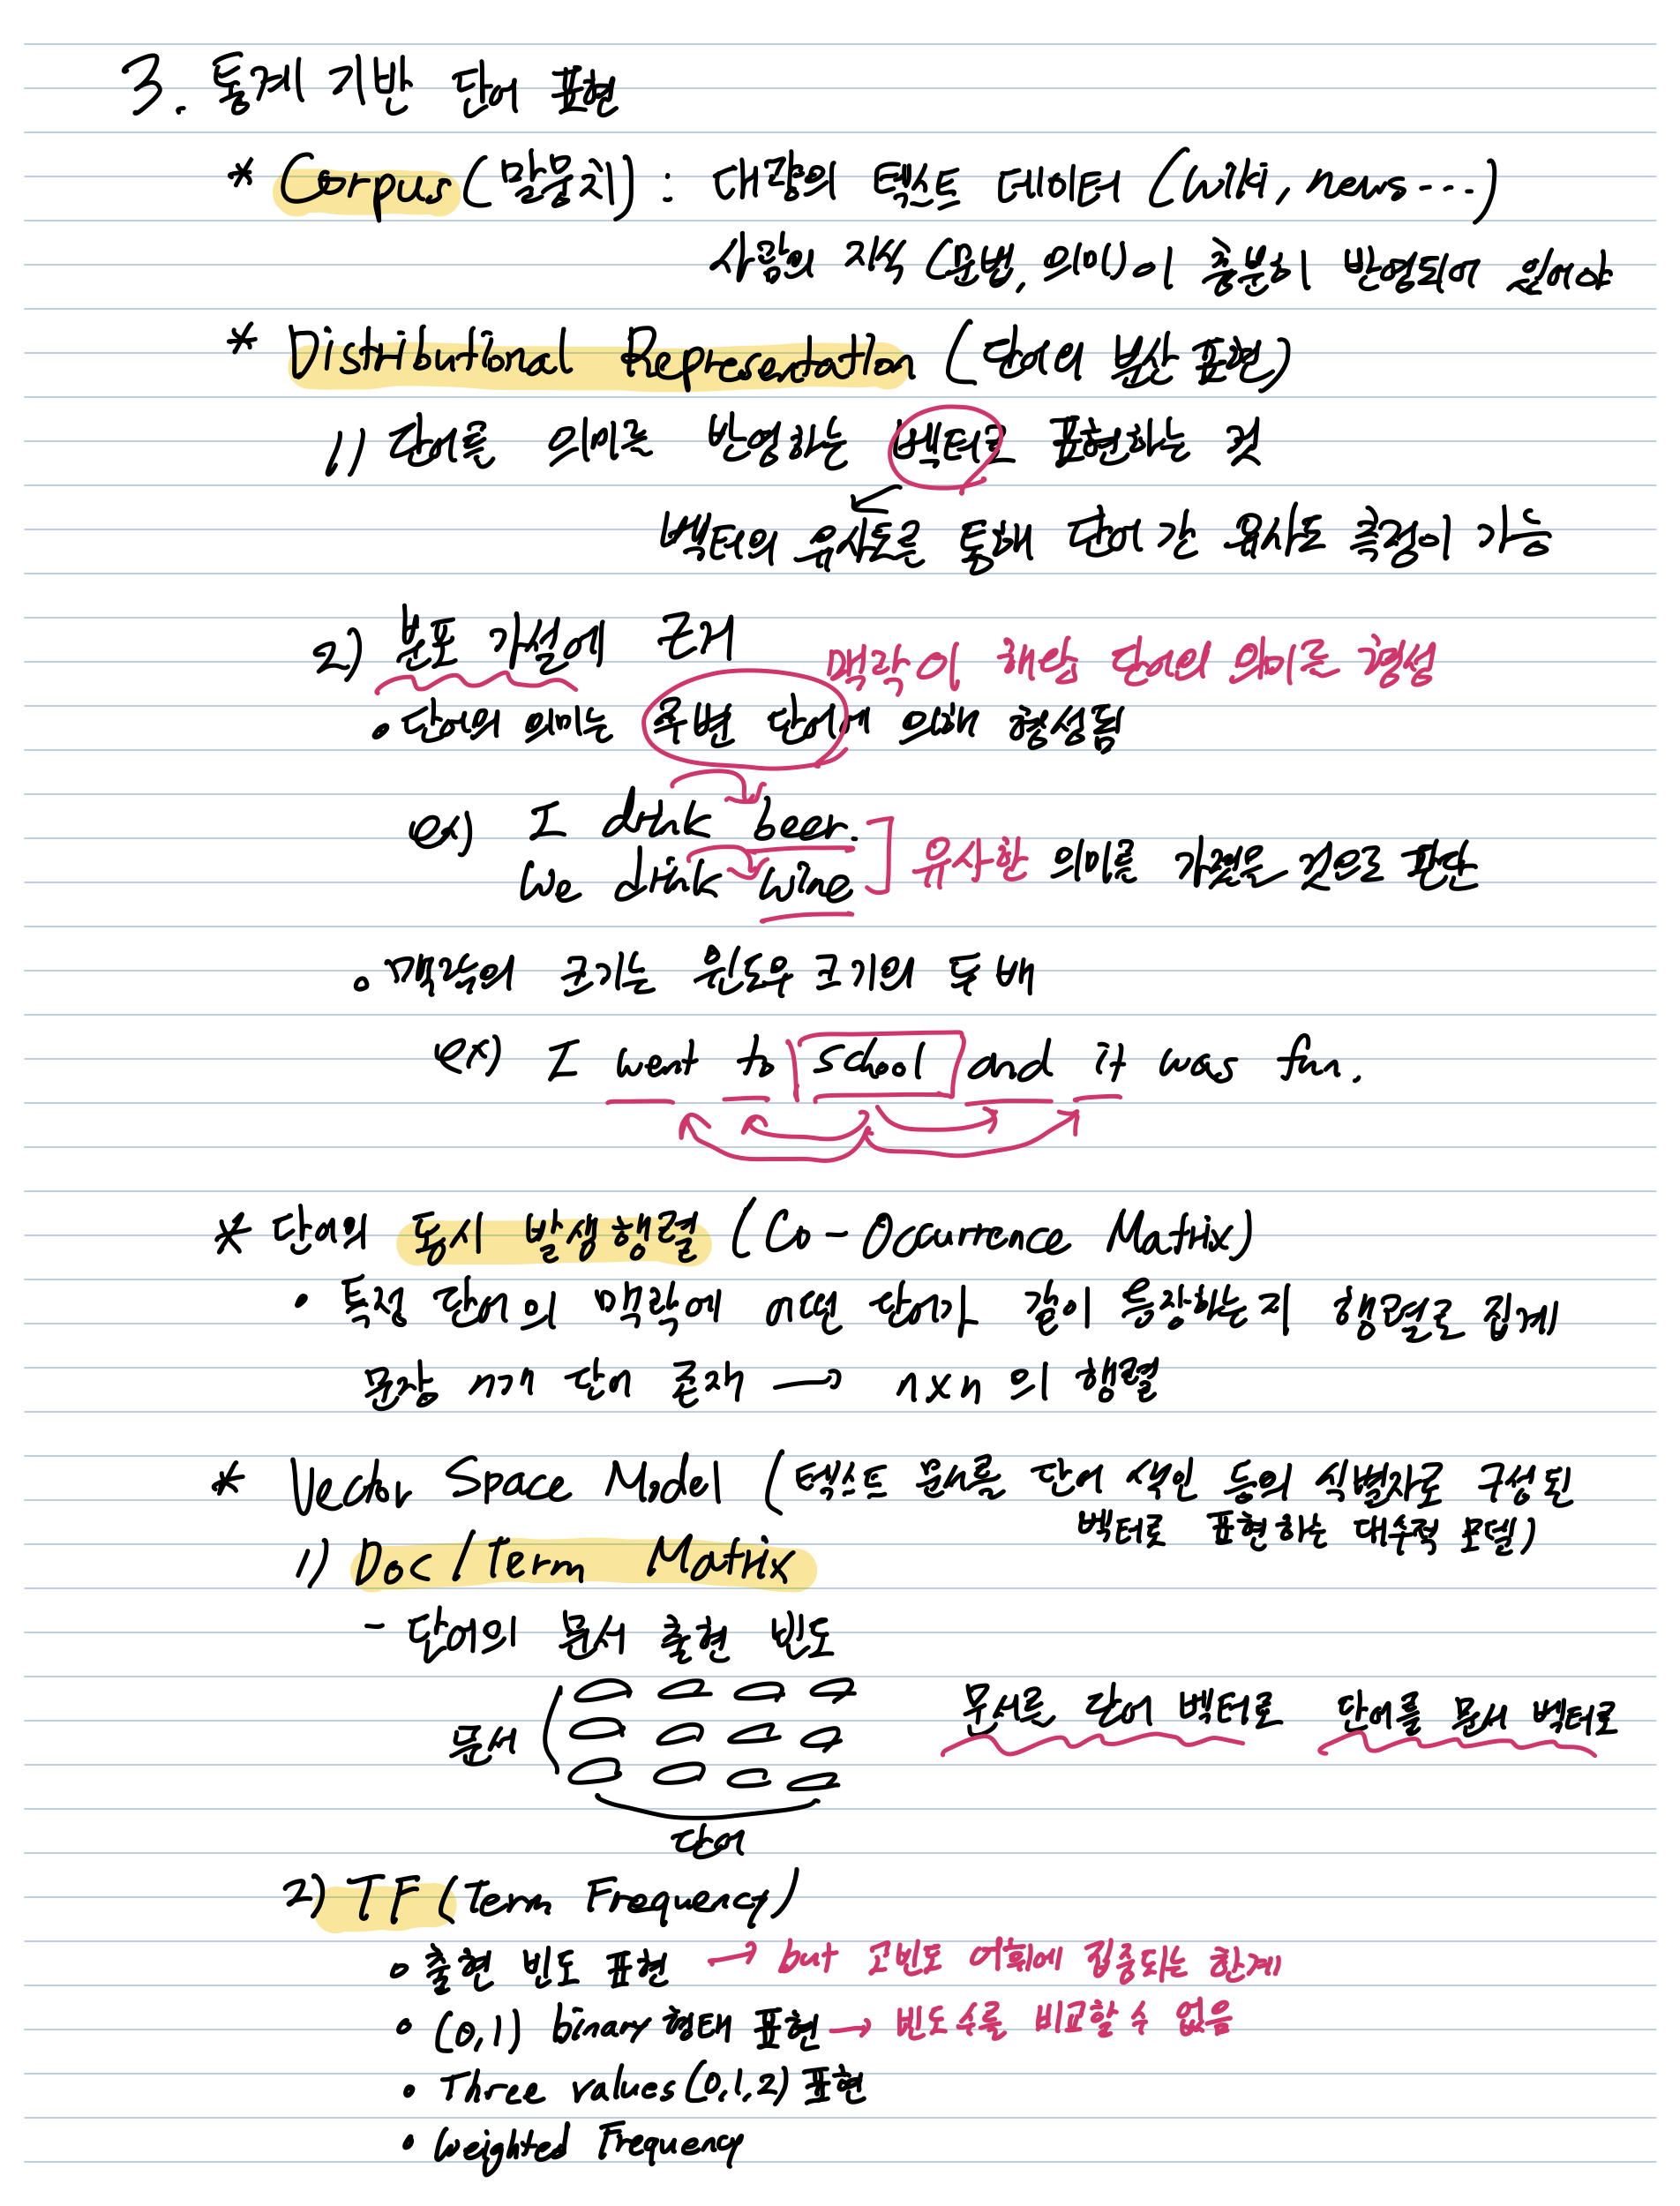 3. 통계 기반 단어 표현
* Corpus (말뭉치) : 대량의 텍스트 데이터 (wiki, news ...)
사람의 지식 (문법, 의미)이 충분히 반영되어 있어야
* Distributional Representation (단어의 분산 표현)
1) 단어를 의미를 반영하는 벡터로 표현하는 것
벡터의 유사도를 통해 단어 간 유사도 측정이 가능
2) 분포 가설에 근거
맥락이 해당 단어의 의미를 형성
• 단어의 의미는 주변 단어에 의해 형성됨
ex) I drink beer.
we drink wine ] 유사한 의미를 가졌을 것으로 판단
• 맥락의 크기는 윈도우 크기의 두 배
ex) I went to school and it was fun.
* 단어의 동시 발생행렬 (Co-Occurrence Matrix)
• 특정 단어의 맥락에 어떤 단어가 같이 등장하는지 행렬로 집계
문장 n개 단어 존재 → n x n 의 행렬
* Vector Space Model (텍스트 문서를 단어 색인 등의 식별자로 구성된
벡터로 표현하는 대수적 모델)
1) Doc / Term Matrix
- 단어의 문서 출현 빈도
문서를 단어 벡터로 단어를 문서 벡터로
문서
단어
2) TF (Term Frequency)
• 출현 빈도 표현 → but 고빈도 어휘에 집중되는 한계
• (0,1) binary 형태 표현 → 빈도수를 비교할 수 없음
• Three values (0,1,2) 표현
• Weighted Frequency